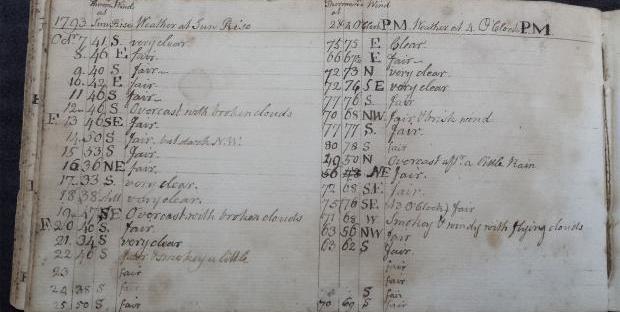 Wind Wind
at at
1793 Sun Rise Weather at Sun Rise 2 & 4 O Clock P.M. Weather at 4 O Clock P.M
Octr 7 41 S very clear 75 75 E Clear.
8 46 E fair. 66 67 E Fair
9 40 S fair 72 73 N very clear.
10 42 E fair 72 76 SE very clear
11 46 S fair 77 76 S fair
12 46 S Overcast with broken clouds 70 68 NW fair & brisk wind
E 13 46 SE fair. 77 77 S fair.
14 50 S fair, but dark N.W. 80 78 S fair
15 53 S fair. 49 50 N Overcast aftr a little Rain
16 36 NE fair NE fair.
17 33 S very clear. 72 68 SE fair.
18 38 still very clear. 75 76 SE (3 O Clock) fair
19 47 SE Overcast with broken clouds 71 68 W Smokey & windy with flying clouds
E 20 40 S fair. 63 56 NW fair
21 34 S very clear 63 62 S fair
22 46 S fair & smokey a little fair
23 fair fair
24 38 S fair S fair
25 50 S fair 70 69 S fair